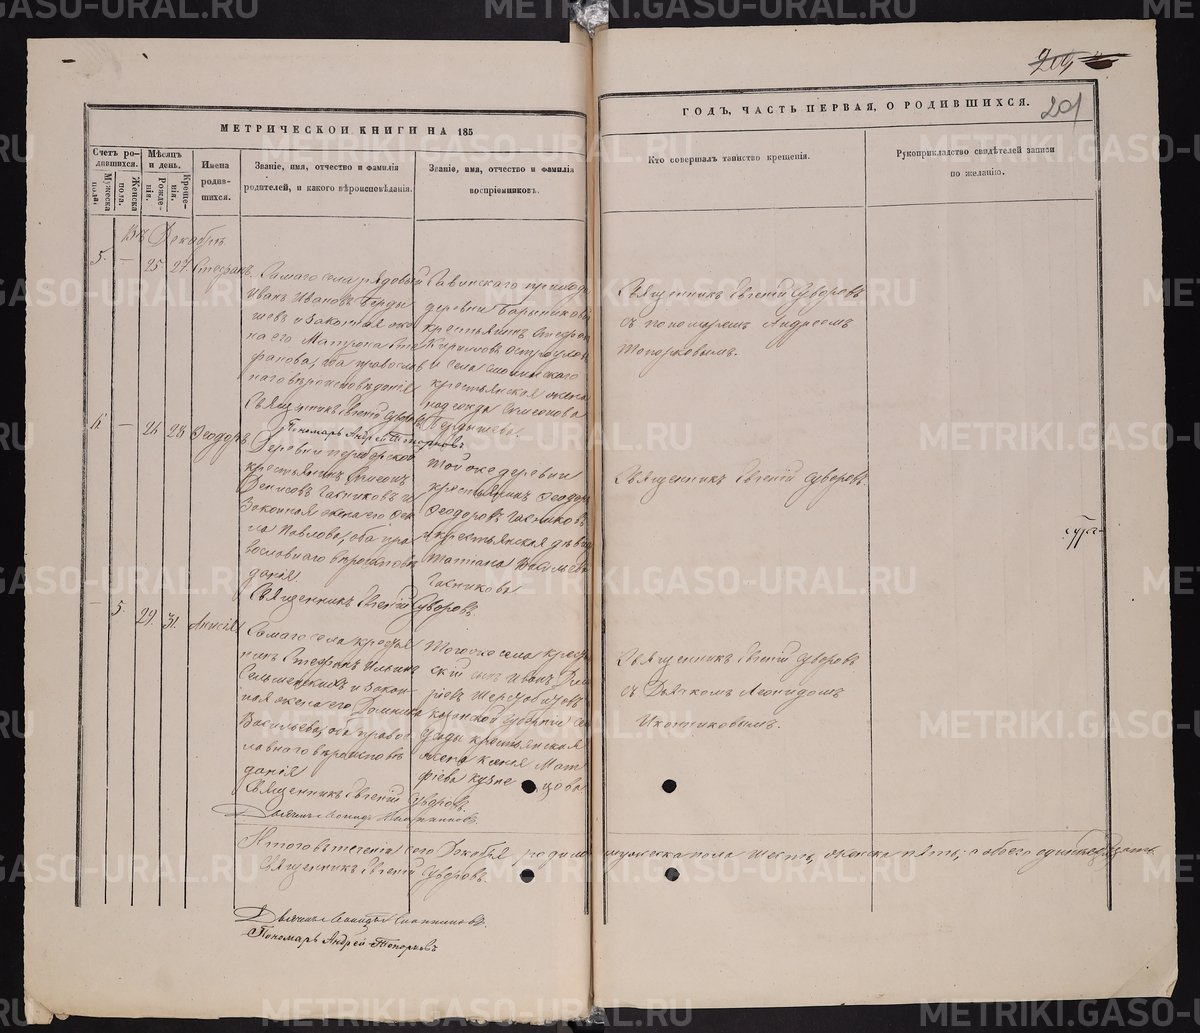 201
МЕТРИЧЕСКОЙ КНИГИ НА 185
ГОДЪ, ЧАСТЬ ПЕРВАЯ, О РОДИВШИХСЯ.
Счетъ родившихся.
Мужеска пола.
Женска пола.
Мѣсяцъ и день.
Рожденія.
Крещенія.
Имена родившихся.
Званіе, имя, отчество и фамилія
родителей, и какого вѣроисповѣданія.
Званіе, имя, отчество и фамилія
воспріемниковъ.
Кто совершалъ таинство крещенія.
Рукоприкладство свидѣтелей записи
по желанію.
Въ Декабрѣ
5. — 25 27 Стефанъ
Самаго села рядовый
Иванъ Ивановъ Берды
шевъ и законная же
на его Матрона Сте
фанова, оба православ
наго вѣроисповѣданія
Священникъ Евгеній Суворовъ
Пономарь Андрей Топорковъ
прихода
деревни
крестьянинъ Стефанъ
Кирилловъ
и села
крестьянская жена
Симеонова
Бердышева
Священникъ Евгеній Суворовъ
съ пономаремъ Андреемъ
Топорковымъ.
6 — 26 28 Ѳеодоръ
Деревни
крестьянинъ
Денисовъ и
законная жена его Ѳек
ла Павлова, оба пра
вославнаго вѣроисповѣ
данія
Священникъ Евгеній Суворовъ
Той же деревни
крестьянинъ Ѳеодоръ
Ѳеодоровъ
и крестьянская дѣвица
Татіана Васильева
Священникъ Евгеній Суворовъ.
— 5. 29. 31. Анисія
Самаго села крестья
нинъ Стефанъ Ильинъ
и закон
ная жена его Домника
Васильева, оба правос
лавнаго вѣроисповѣ
данія
Священникъ Евгеній Суворовъ.
Того же села крестьян
скій сынъ Иванъ
Казанской губерніи
крестьянская
жена Ксенія Мат
фіева Кузнецова
Священникъ Евгеній Суворовъ
съ Дьячкомъ Леонидомъ
Иконниковымъ.
Итого въ теченіи сего Декабря родилось мужеска пола шесть, женска пять; а обоего одиннадцать.
Священникъ Евгеній Суворовъ.
Дьячекъ Леонидъ Иконниковъ.
Пономарь Андрей Топорковъ
METRIKI.GASO-URAL.RU